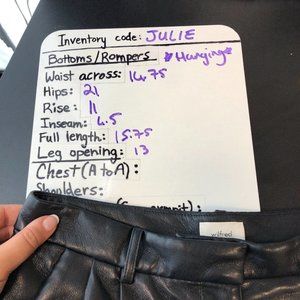 Inventory code: JULIE
Bottoms/Rompers *Hanging*
Waist across: 14.75
Hips: 21
Rise: 11
Inseam: 4.5
Full length: 15.75
Leg opening: 13
Chest (A to A):
Shoulders:
wilfred